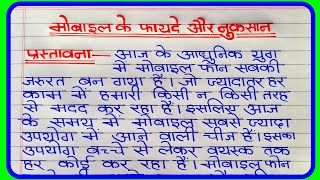 मोबाइल के फायदे और नुकसान
प्रस्तावना— आज के आधुनिक युग
में मोबाइल फोन सबकी
जरुरत बन गया हैं। जो ज्यादातर हर
काम में हमारी किसी न किसी तरह
से मदद कर रहा हैं। इसलिए आज
के समय में मोबाइल सबसे ज्यादा
उपयोग में आने वाली चीज हैं। इसका
उपयोग बच्चे से लेकर वयस्क तक
हर कोई कर रहा हैं। मोबाइल फोन